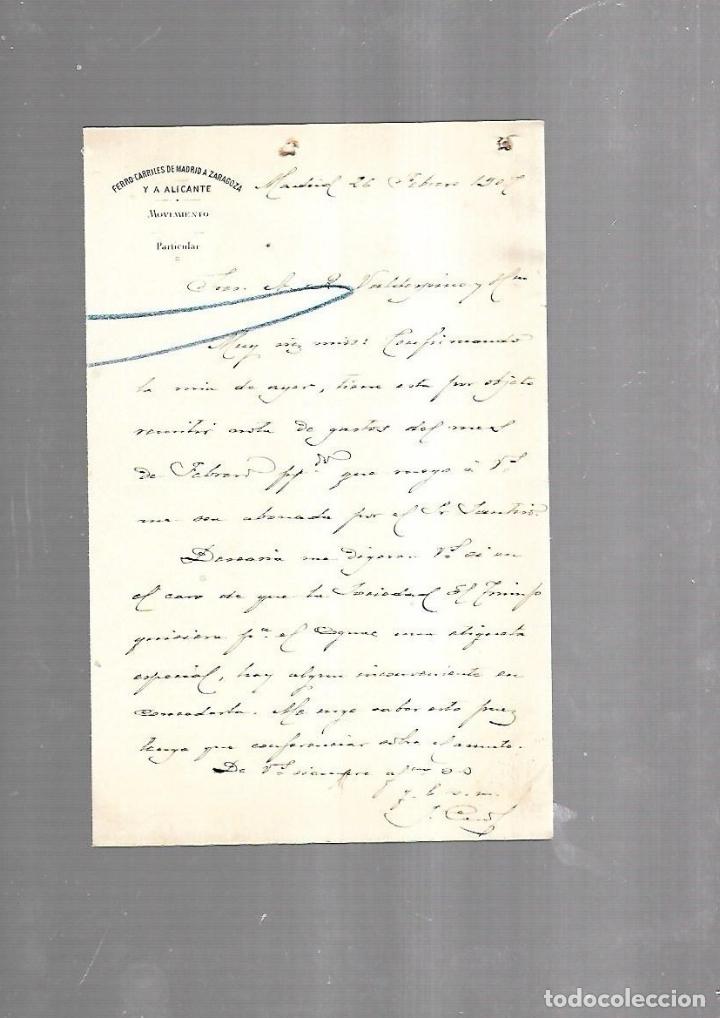 FERRO-CARRILES DE MADRID A ZARAGOZA
Y A ALICANTE
MOVIMIENTO
Particular
Madrid 26 Febrero 190
Sres. A. R. Valdespino y Hno
Muy Sres mios: Confirmando
la mia de ayer, tiene esta por objeto
remitir nota de gastos del mes
de Febrero que ruego á Vs
me sea abonada por el Sr
Desearia me digeran Vs si en
el caso de que la Sociedad El Triunfo
quisiera pa el Cognac una etiqueta
especial, hay algun inconveniente en
concederla. Me urge saber esto pues
tengo que conferenciar sobre el asunto.
De Vs siempre afmo S S
q. b. s. m.
todocoleccion.net